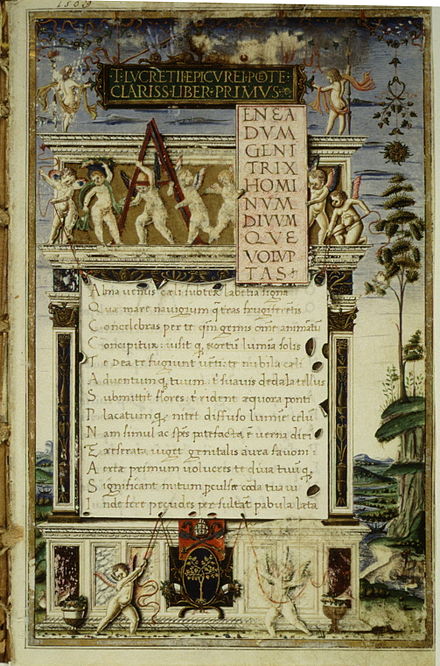 T·LVCRETII·EPICVREI·POTE·
CLARISS·LIBER·PRIMVS·
A
ENEA
DVM
GENI
TRIX
HOMI
NVM
DIVVM
QVE
VOLVP
TAS
Alma uenus cæli subter labētia signa
Quæ mare nauigerum q̃ terras frugiferentis
Concelebras per te qm̃ genus om̃e animātū
Concipitur: uisitq; exortū lumīa solis
Te Dea te fugiunt uēti: te nubila cæli
Aduentumq; tuum: t̃ suauis dedala tellus
Submittit flores: t̃ rident æquora ponti
Placatumq; nitet diffuso lumīe celum
Nam simul ac spēs patefacta ē uerna diei
Et reserata uiget genitalis aura fauoni
Aeriæ primum uolucres te diua tuūq;
Significant initum perculsæ corda tua ui
Inde feræ pecudes persultāt pabula læta